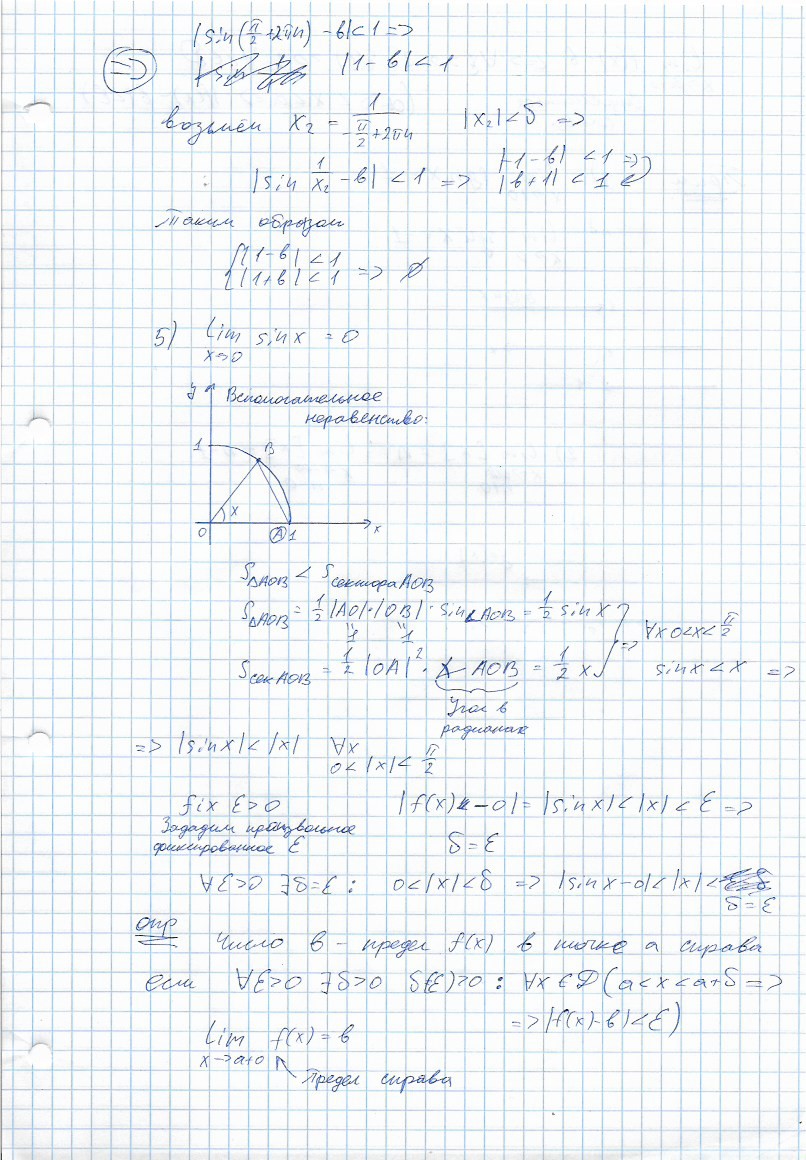 |sin(π/2+2πn) - b|<1 =>
=> |1-b|<1
возьмём x₂ = 1/(-π/2+2πn) |x₂|<δ =>
|sin 1/x₂ - b| < 1 => |-1-b| < 1 =>
|b+1| < 1
Таким образом
{ |1-b| < 1
{ |1+b| < 1 => ∅
5) Lim sin x = 0
x→0
y Вспомогательное
неравенство:
1 B
x
0 A 1 x
S△AOB < Sсектора AOB
S△AOB = 1/2 |AO|·|OB|·sin∠AOB = 1/2 sin x
"1 "1
=> ∀x 0<x<π/2
Sсек AOB = 1/2 |OA|²·∠AOB = 1/2 x
sin x < x =>
Угол в
радианах
=> |sin x| < |x| ∀x
0 < |x| < π/2
fix ε>0 |f(x) - 0| = |sin x| < |x| < ε =>
Зададим произвольное
фиксированное ε δ = ε
∀ε>0 ∃δ=ε : 0<|x|<δ => |sin x-0|<|x|<
δ = ε
опр Число b - предел f(x) в точке a справа
если ∀ε>0 ∃δ>0 δ(ε)>0 : ∀x∈D (a<x<a+δ =>
=> |f(x)-b|<ε)
Lim f(x) = b
x→a+0
Предел справа